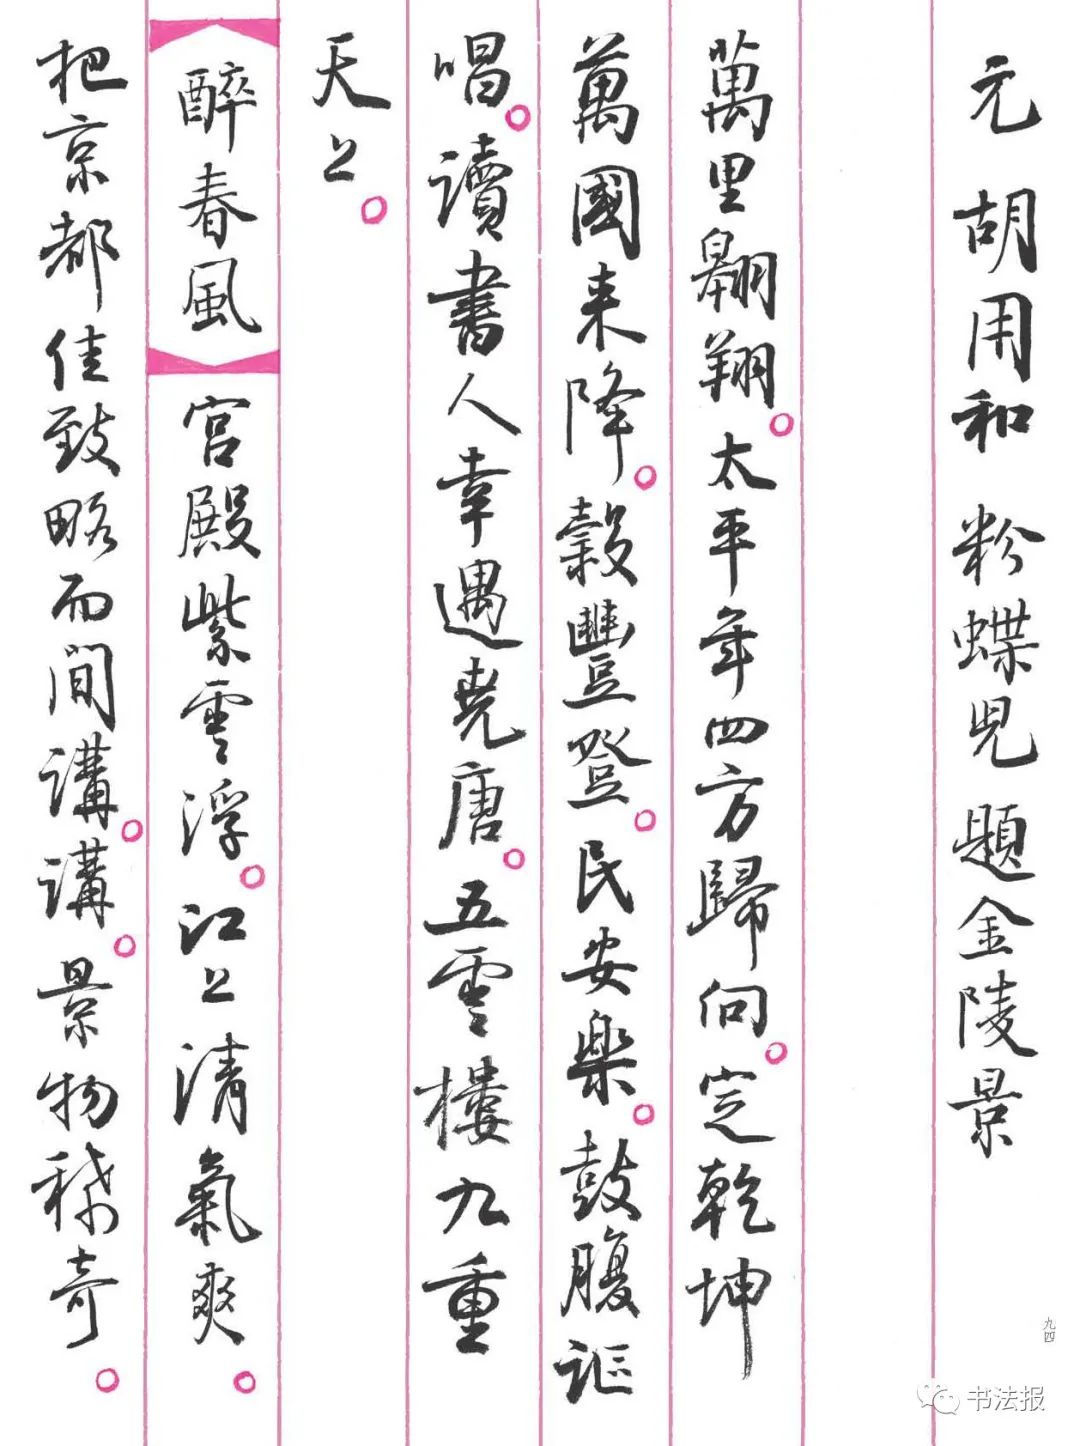 元 胡用和 粉蝶兒 題金陵景
萬里翱翔。太平年四方歸向。定乾坤
萬國来降。穀豐登。民安樂。鼓腹謳
唱。讀書人幸遇堯唐。五雲樓九重
天上。
醉春風 宮殿紫雲浮。江上清氣爽。
把京都佳致略而間講。講。景物稀奇。
九四
书法报